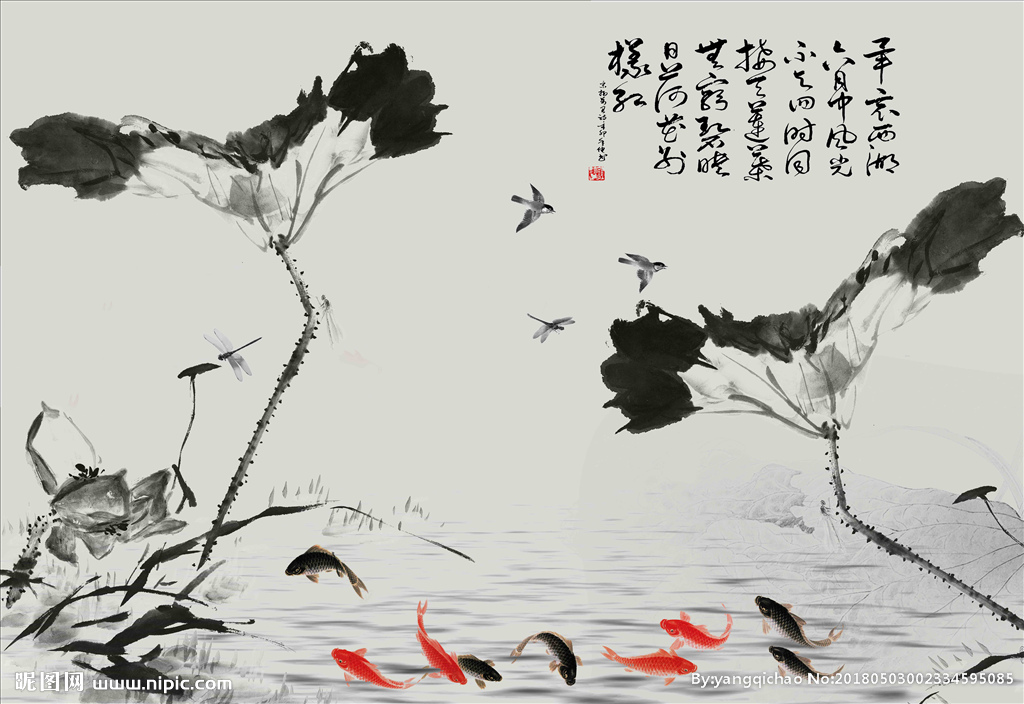 畢竟西湖
六月中風光
不與四時同
接天蓮葉
無窮碧映
日荷花別
樣紅
宋楊萬里詩
昵图网 www.nipic.com
By:yangqichao No:20180503002334595085